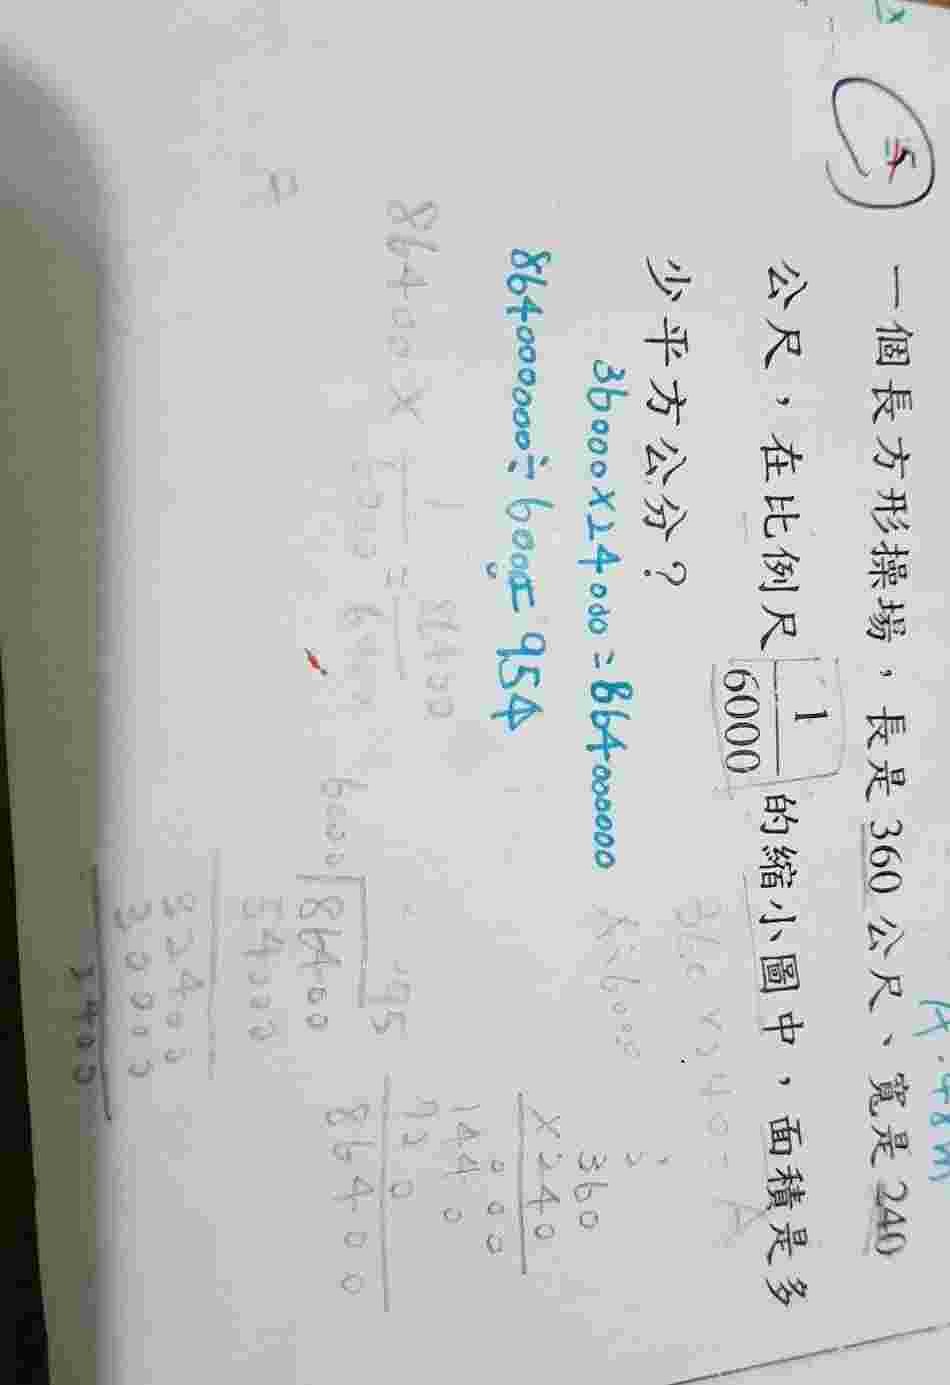 5
一個長方形操場，長是360公尺、寬是240
公尺，在比例尺 1/6000 的縮小圖中，面積是多
少平方公分？
36000×24000=864000000
864000000÷6000=954
86400×
86400
360
×240
000
1440
720
86400
95
6000
86400
54000
32400
30000
2400